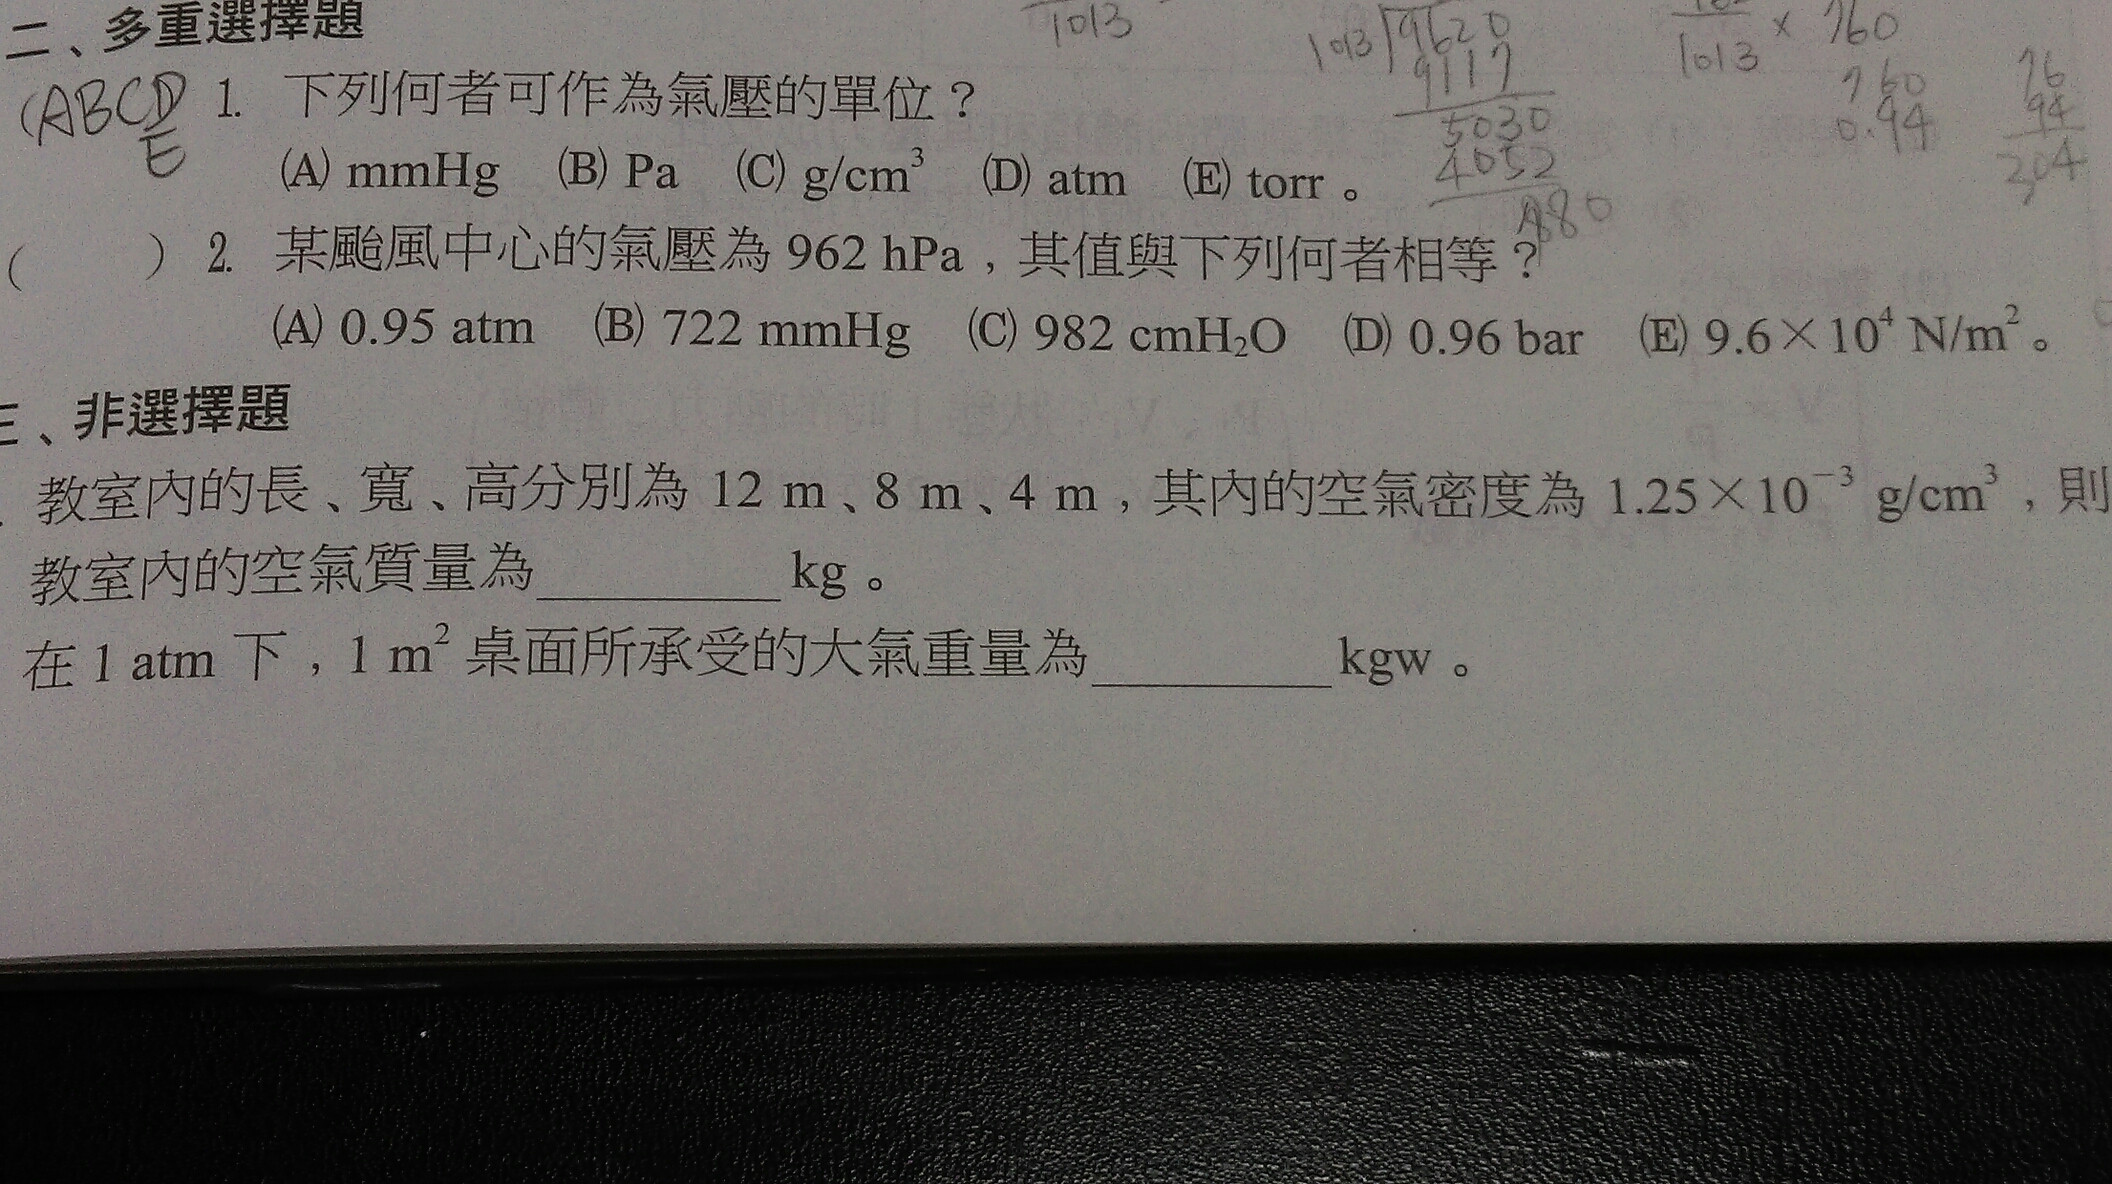 1013
1013 9620
9117
5030
4052
1013 × 760
760
0.94
76
94
304
二、多重選擇題
(ABCD
E
1. 下列何者可作為氣壓的單位？
(A) mmHg (B) Pa (C) g/cm³ (D) atm (E) torr。
( ) 2. 某颱風中心的氣壓為 962 hPa，其值與下列何者相等？
(A) 0.95 atm (B) 722 mmHg (C) 982 cmH₂O (D) 0.96 bar (E) 9.6×10⁴ N/m²。
三、非選擇題
教室內的長、寬、高分別為 12 m、8 m、4 m，其內的空氣密度為 1.25×10⁻³ g/cm³，則
教室內的空氣質量為________kg。
在 1 atm 下，1 m² 桌面所承受的大氣重量為________kgw。